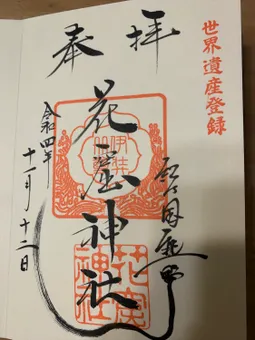 世界遺産登録
奉拝
熊野
花窟神社
令和四年
十一月十二日
花窟
神社